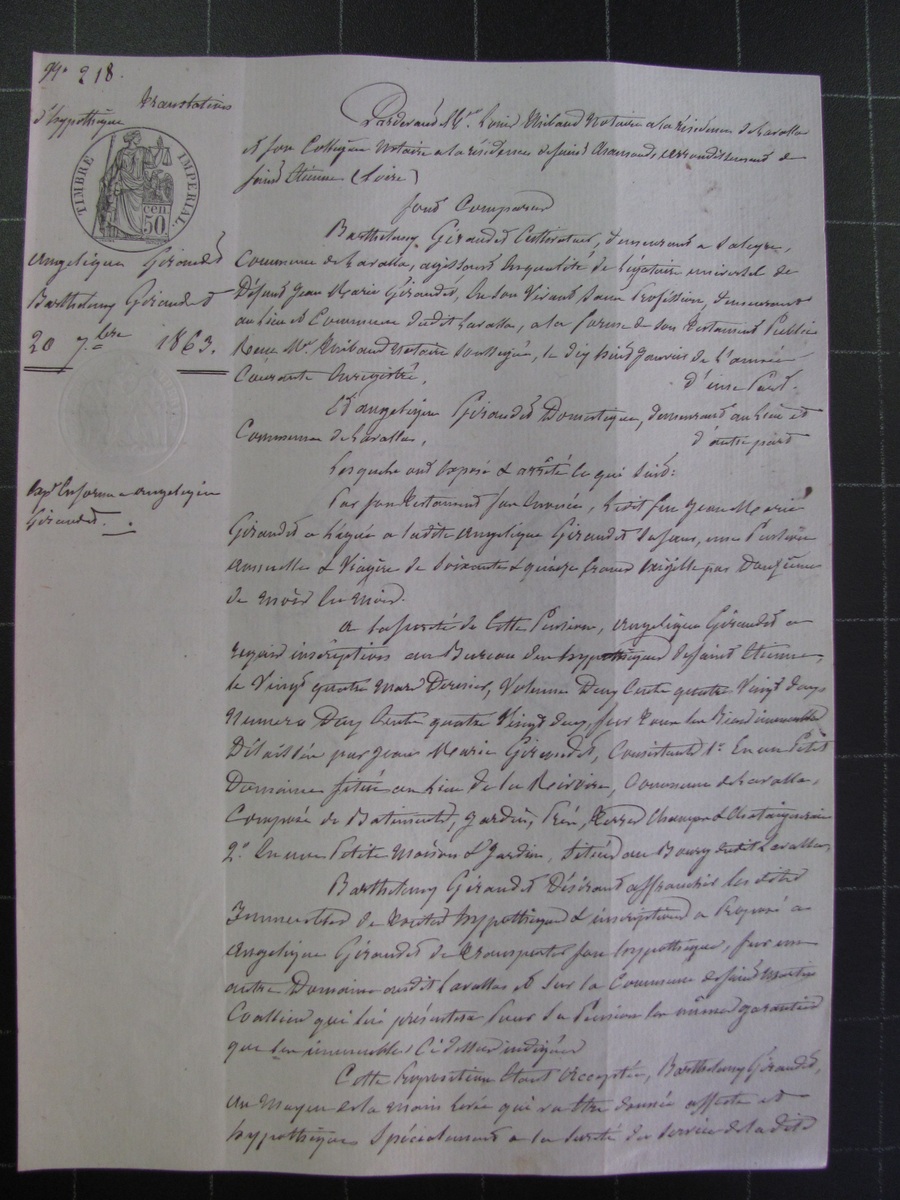 No 218.
translation
d'hypothèque
TIMBRE IMPERIAL.
50 cen
Angélique Giraudet
Barthelemy Giraudet
20 7.bre 1863.
Angélique
Giraudet.
Pardevant Me Louis Mibaud Notaire a la résidence de Lavalla
et son Collègue Notaire a la résidence de saint Chamond, arrondissement de
saint Etienne (Loire)
sont Comparus
Barthelemy Giraudet Cultivateur, demeurant a
Commune de Lavalla, agissant en qualité de légataire universel de
Défunt Jean Marie Giraudet, en son vivant sans Profession, demeurant
au lieu et Commune dudit Lavalla, a la forme de son testament Public
Reçu Me Mibaud Notaire soussigné, le dix huit janvier de l'année
Courante Enregistré, d'une Part.
Et Angélique Giraudet Domestique, demeurant au lieu et
Commune de Lavalla, d'autre part
Lesquels ont exposé & arrêté ce qui suit:
Par son testament sus énoncé, ledit feu Jean Marie
Giraudet a légué a ladite Angélique Giraudet sa une Pension
annuelle & Viagère de soixante & quinze francs exigible par Douzième
de mois en mois.
a la sureté de cette Pension, Angélique Giraudet a
requis inscription au Bureau des hypothèques de saint Etienne,
le Vingt quatre mars Dernier, Volume Deux Cents quatre Vingt deux
Numero Deux Cents quatre Vingt deux, sur tous les Biens immeubles
Délaissés par Jean Marie Giraudet, Consistant 1o En un Petit
Domaine situé au lieu de la Commune de Lavalla,
Composé de Batiments, Jardin, Prés, Terres Champs & Chataigneraie
2o En une Petite Maison & Jardin, situés au Bourg dudit Lavalla,
Barthelemy Giraudet Désirant affranchir les dits
Immeubles de toutes hypothèques & inscriptions a Proposé a
Angélique Giraudet de transporter son hypothèque, sur un
autre Domaine audit Lavalla et sur la Commune de saint Martin
Coallieu qui lui présentera pour sa Pension les mêmes garanties
que les immeubles Ci dessus indiqués
Cette Proposition étant acceptée, Barthelemy Giraudet,
au Moyen de la Main levée qui va être donnée affecte et
hypothèque Spécialement a la sureté du service de la dite